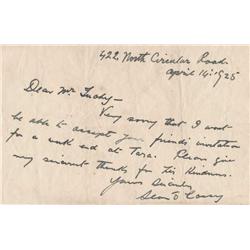 422, North Circular Road.
April 14: 1925
Dear Mr Tuohy—
Very sorry that I wont
be able to accept your friends' invitation
for a week end at Tara. Please give
my sincerest thanks for his kindness.
Yours Sincerely
Sean O'Casey